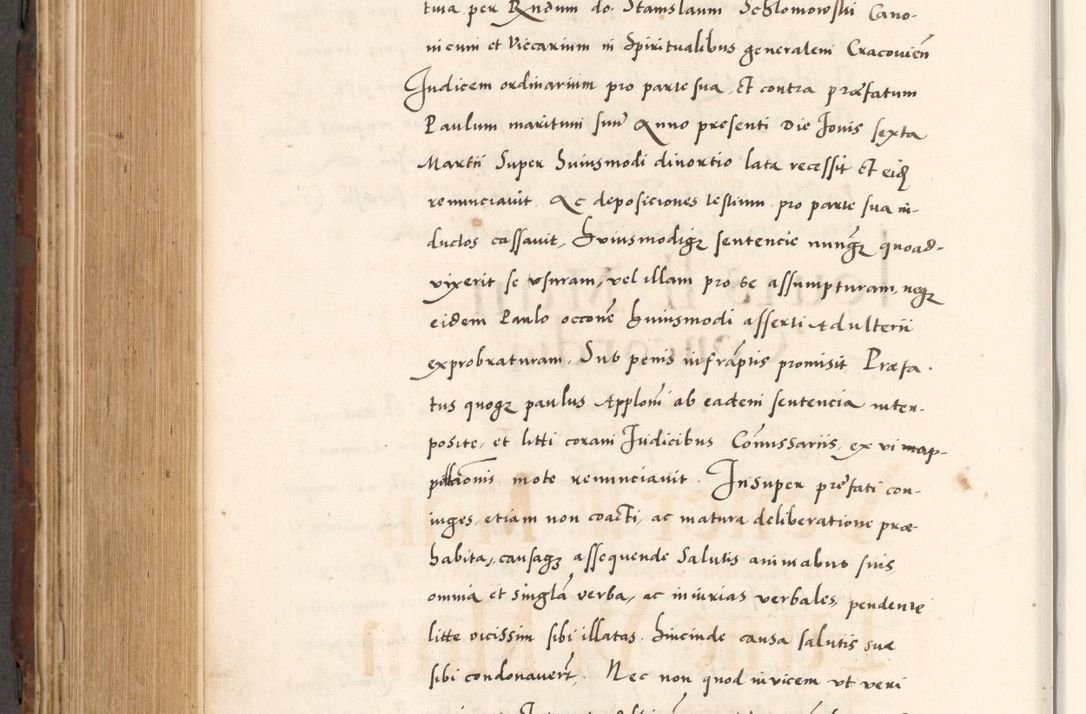 tiua per Rndum do. Stanislaum Schlomowski Cano-
nicum et Viccarium in Spiritualibus generalem Cracovien
Judicem ordinarium pro parte sua, Et contra præfatum
Paulum maritum suum Anno presenti Die Jovis sexta
Martii Super huiusmodi divortio lata recessit Et eidem
renunciavit. Ac deposiciones testium pro parte sua in-
ductos cassavit, Huiusmodique sentencie nunque quoad-
vixerit se usuram, vel illam pro se assumpturam, neque
eidem Paulo occone huiusmodi asserti Adulterii
exprobraturam. Sub penis infraptis promisit Præfa-
tus quoque paulus Applom ab eadem sentencia inter-
posite, et litti coram Judicibus Comissariis, ex vi
mote renunciavit. Insuper prefati con-
iuges, etiam non coacti, ac matura deliberatione præ-
habita, causaque assequende Salutis animabus suis
omnia et singla verba, ac iniurias verbales, pendente
litte vicissim sibi illatas. hincinde causa salutis suæ
sibi condonavert. Nec non quod invicem ut veri